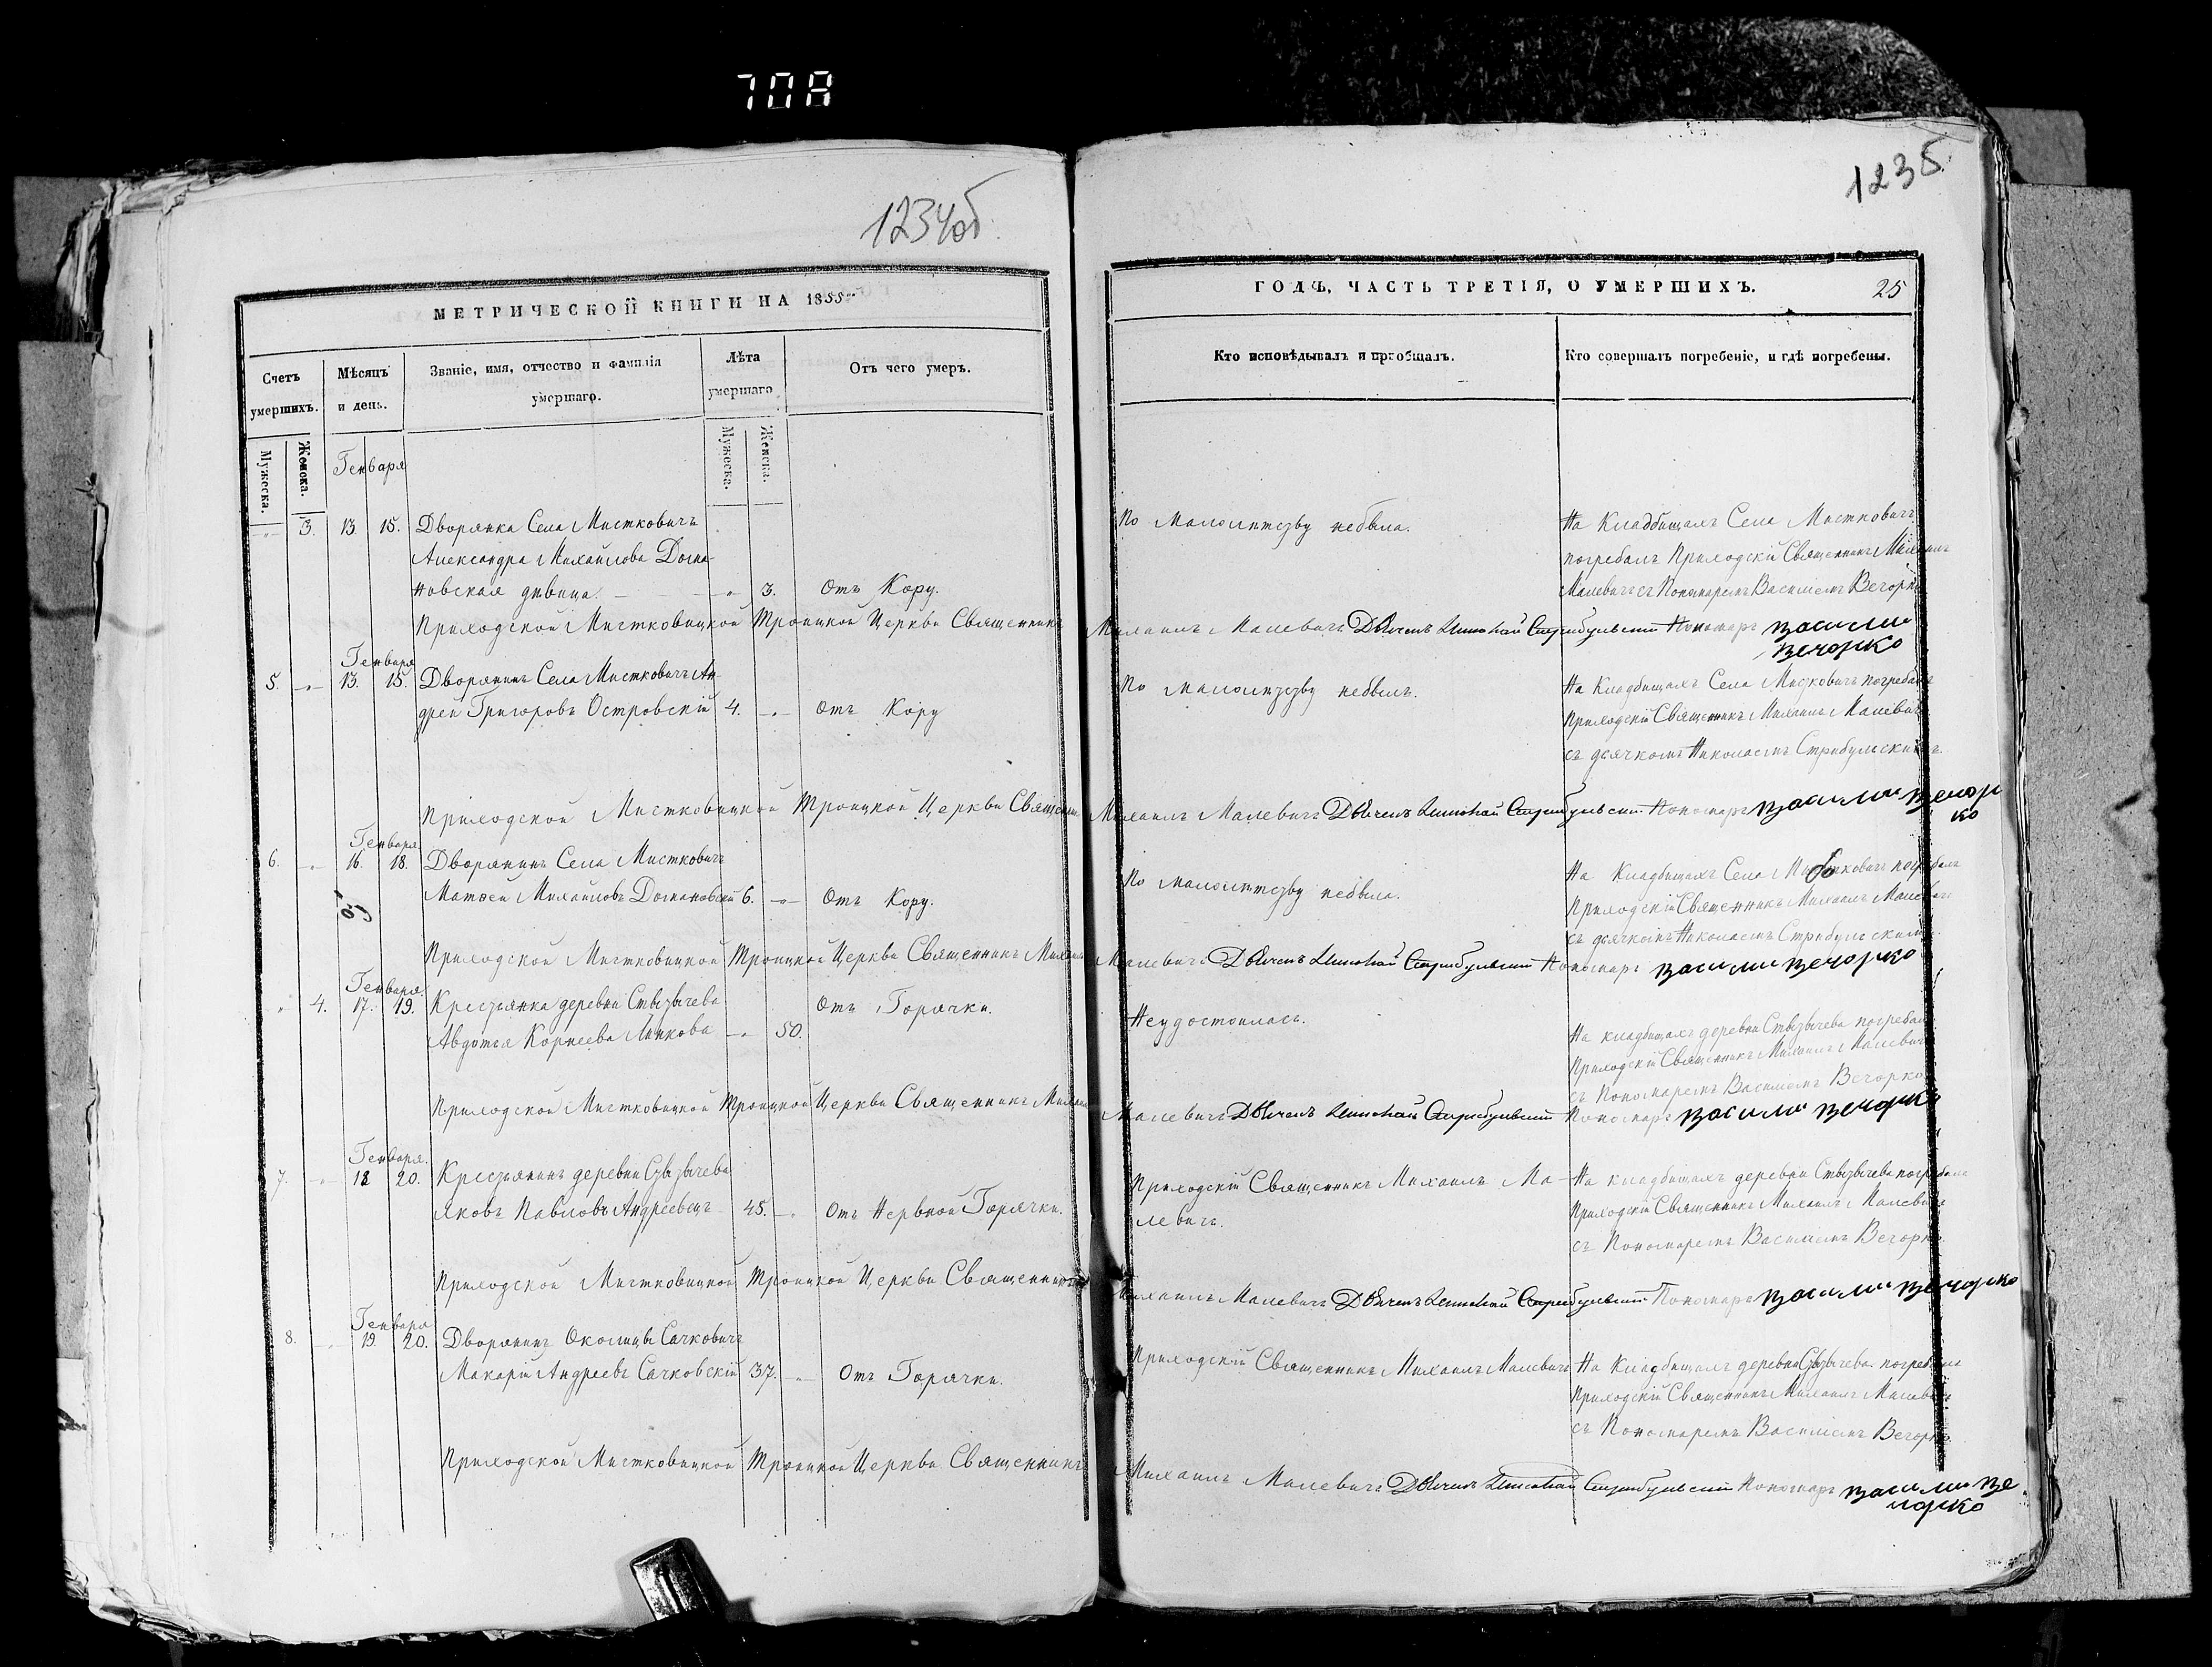 708
1234об
МЕТРИЧЕСКОЙ КНИГИ НА 1855
Счетъ умершихъ.
Мѣсяцъ и день.
Званіе, имя, отчество и фамилія умершаго.
Лѣта умершаго
Отъ чего умеръ.
Мужеска.
Женска.
Мужеска.
Женска.
Генваря
3. 13 15. Дворянка Села Мистковичъ
Александра Михайлова Дома-
новская дѣвица. 3. Отъ Кору.
Приходской Мистковицкой Троицкой Церкви Священникъ
Генваря
5. 13. 15. Дворянинъ Села Мистковичъ Ан
дрей Григоровъ Островскій 4. Отъ Кору
Приходской Мистковицкой Троицкой Церкви Священни
Генваря
6. 16. 18. Дворянинъ Села Мистковичъ
Матѳей Михайловъ Домановскій 6. Отъ Кору.
Приходской Мистковицкой Троицкой Церкви Священникъ Михаилъ
Генваря.
4. 17. 19. Крестьянка деревни Ствузычева Отъ Горячки.
Авдотья Корнеева 50.
Приходской Мистковицкой Троицкой Церкви Священникъ Михаилъ
Генваря.
7. 18 20. Крестьянинъ деревни
Яковъ Павловъ Андреевецъ 45. Отъ Нервной Горячки.
Приходской Мистковицкой Троицкой Церкви Священникъ
Генваря
8. 19. 20. Дворянинъ Околицы Сачковичъ
Макарій Андреевъ Сачковскій 37. Отъ Горячки.
Приходской Мистковицкой Троицкой Церкви Священникъ
1235
ГОДЪ, ЧАСТЬ ТРЕТІЯ, О УМЕРШИХЪ.
25
Кто исповѣдывалъ и пріобщалъ.
Кто совершалъ погребеніе, и гдѣ погребены.
По малолѣтству небыла.
На Кладбищахъ Села Мистковичъ
погребалъ Приходскій Священникъ Михаилъ
Малевичъ съ Пономаремъ Василіемъ Вечорко
Михаилъ Малевичъ Дьячекъ Николай Стрибульскій Пономарь Василий
Вечорко
По малолѣтству небылъ.
На Кладбищахъ Села Мистковичъ погребалъ
Приходскій Священникъ Михаилъ Малевичъ
съ дьячкомъ Николаемъ Стрибульскимъ.
Михаилъ Малевичъ Дьячекъ Николай Стрибульскій Пономарь Василий Вечор
ко
По малолѣтству небыла.
На Кладбищахъ Села Мистковичъ погребалъ
Приходскій Священникъ Михаилъ Малевичъ
съ дьячкомъ Николаемъ Стрибульскимъ
Малевичъ Дьячекъ Николай Стрибульскій Пономарь Василий Вечорко
Неудостоилась.
На кладбищахъ деревни Ствузычева погребалъ
Приходскій Священникъ Михаилъ Малевичъ
съ Пономаремъ Василіемъ Вечорко
Малевичъ Дьячекъ Николай Стрибульскій Пономарь Василий Вечорко
Приходскій Священникъ Михаилъ Ма-
левичъ.
На кладбищахъ деревни Ствузычева погребалъ
Приходскій Священникъ Михаилъ Малевичъ
съ Пономаремъ Василіемъ Вечорко.
Михаилъ Малевичъ Дьячекъ Николай Стрибульскій Пономарь Василий Вечорко
Приходскій Священникъ Михаилъ Малевичъ
На Кладбищахъ деревни погребалъ
Приходскій Священникъ Михаилъ Малевичъ
съ Пономаремъ Василіемъ Вечорко
Михаилъ Малевичъ Дьячекъ Николай Стрибульскій Пономарь Василий Ве
чорко